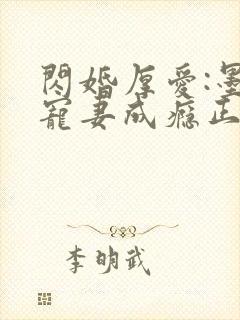 閃婚厚愛:墨
寵妻成癮正
李明武